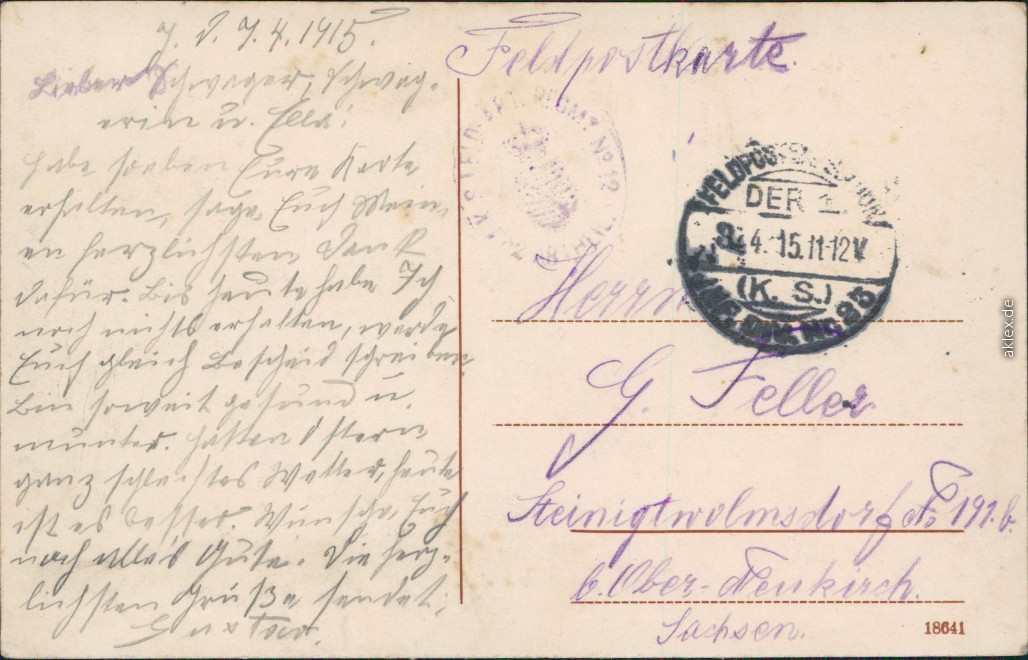 J. V. 7.4.1915.
Lieber Schwager, Schwäg-
erin u. Ella!
Habe soeben Eure Karte
erhalten, sage Euch Mein-
en herzlichsten Dank
dafür. Bis heute habe Ich
noch nichts erhalten, werde
Euch gleich Bescheid schreiben.
Bin soweit gesund u.
munter. Hatten Ostern
ganz schlechtes Wetter, heute
ist es besser. Wünsche Euch
noch alles Gute. Die herz-
lichsten Grüße sendet,
Feldpostkarte.
FELD-ART. REGMT No 12
FELDPOSTEXPEDITION
DER
8.4.15.11-12V.
(K. S.)
DIV. No. 23
Herrn
G. Feller
Steinigtwolmsdorf No 191.b.
b. Ober-Neukirch.
Sachsen.
18641
aklex.de